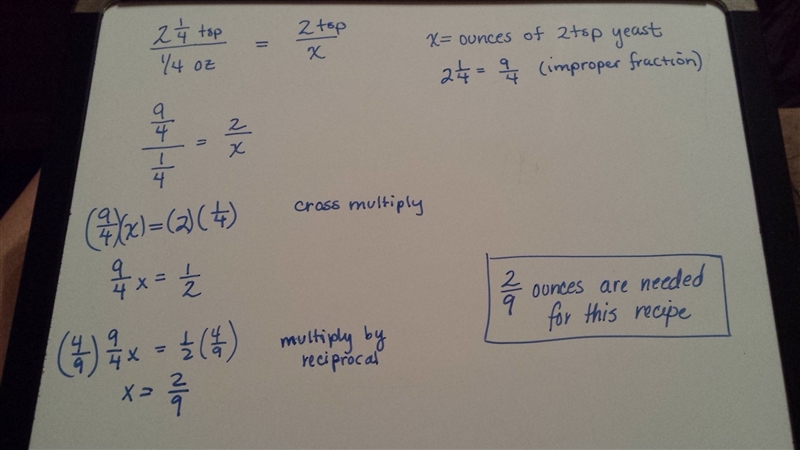 2 1/4 tsp / 1/4 oz = 2 tsp / x
x = ounces of 2 tsp yeast
2 1/4 = 9/4 (improper fraction)
9/4 / 1/4 = 2/x
(9/4)(x) = (2)(1/4) cross multiply
9/4 x = 1/2
(4/9) 9/4 x = 1/2 (4/9) multiply by
reciprocal
x = 2/9
2/9 ounces are needed
for this recipe